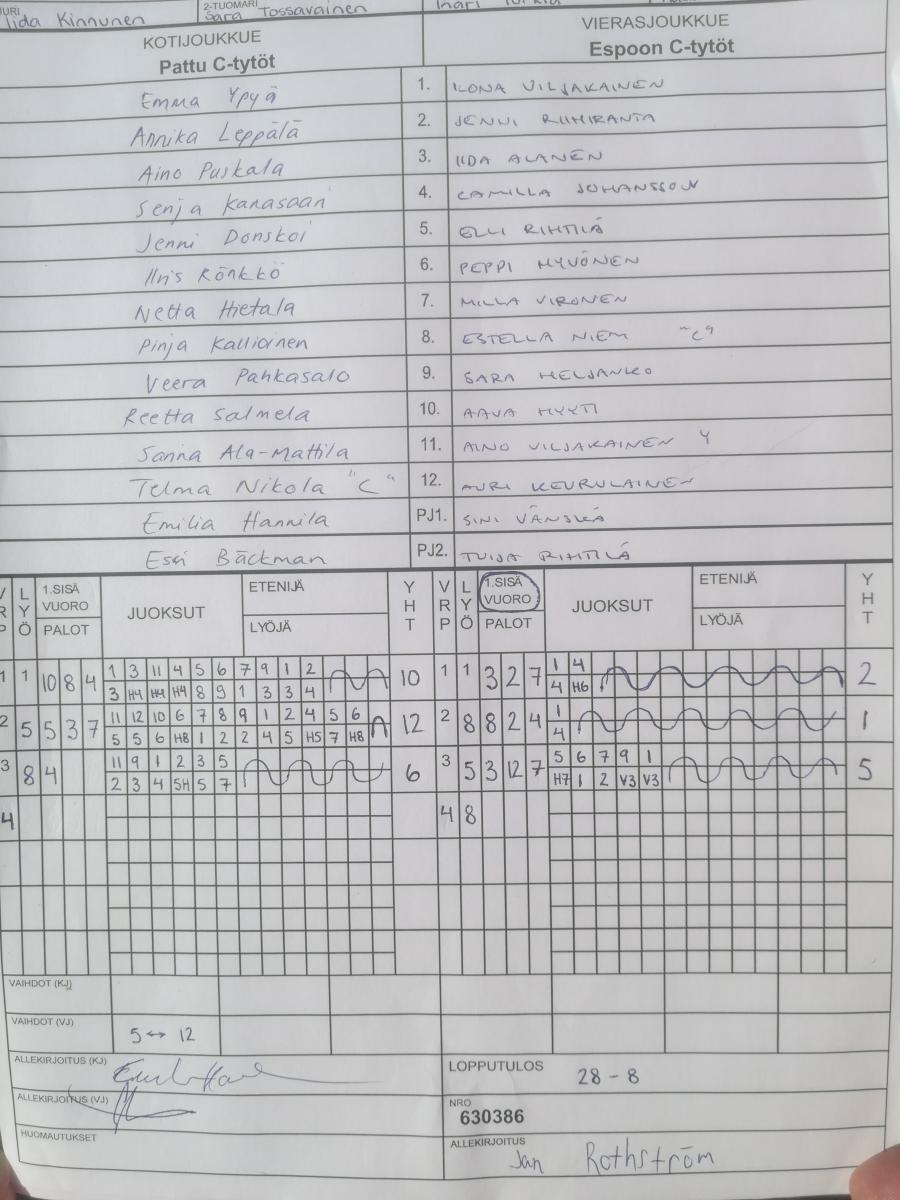 Iida Kinnunen 2-TUOMARI Sara Tossavainen
KOTIJOUKKUE VIERASJOUKKUE
Pattu C-tytöt Espoon C-tytöt
Emma Ypyä 1. ILONA VILJAKAINEN
Annika Leppälä 2. JENNI RIIHIRANTA
Aino Puskala 3. IIDA ALANEN
Senja Kanasaari 4. CAMILLA JOHANSSON
Jenni Donskoi 5. ELLI RIHTILÄ
Iiris Rönkkö 6. PEPPI HYVÖNEN
Netta Hietala 7. MILLA VIRONEN
Pinja Kallioinen 8. ESTELLA NIEMI "C"
Veera Pahkasalo 9. SARA HELJANKO
Reetta Salmela 10. AAVA HYYTI
Sanna Ala-Mattila 11. AINO VILJAKAINEN Y
Telma Nikola "C" 12. AURI KEURULAINEN
Emilia Hannila PJ1. SINI VÄNSKÄ
Essi Bäckman PJ2. TUIJA RIHTILÄ
VRP LYÖ 1.SISÄ VUORO PALOT JUOKSUT ETENIJÄ LYÖJÄ YHT VRP LYÖ 1.SISÄ VUORO PALOT JUOKSUT ETENIJÄ LYÖJÄ YHT
1 1 10 8 4 1 3 11 4 5 6 7 9 1 2 10 1 1 3 2 7 1 4 2
3 H4 H4 H4 8 9 1 3 3 4 4 H6
2 5 5 3 7 11 12 10 6 7 8 9 1 2 4 5 6 12 2 8 8 2 4 1 1
5 5 6 H8 1 2 2 4 5 H5 7 H8 4
3 8 4 11 9 1 2 3 5 6 3 5 3 12 7 5 6 7 9 1 5
2 3 4 5H 5 7 H7 1 2 V3 V3
4 4 8
VAIHDOT (KJ)
VAIHDOT (VJ) 5 ↔ 12
ALLEKIRJOITUS (KJ) LOPPUTULOS 28 - 8
ALLEKIRJOITUS (VJ) NRO 630386
HUOMAUTUKSET ALLEKIRJOITUS Jan Rothström